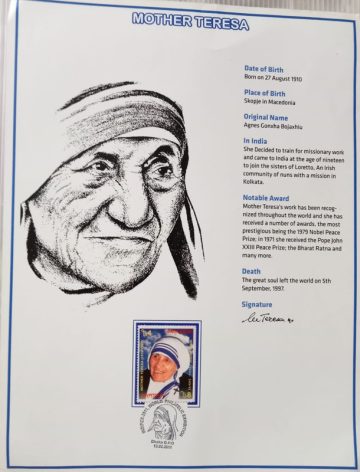 MOTHER TERESA
Date of Birth
Born on 27 August 1910
Place of Birth
Skopje in Macedonia
Original Name
Agnes Gonxha Bojaxhiu
In India
She Decided to train for missionary work
and came to India at the age of nineteen
to join the sisters of Loretto, An Irish
community of nuns with a mission in
Kolkata.
Notable Award
Mother Teresa's work has been recog-
nized throughout the world and she has
received a number of awards, the most
prestigious being the 1979 Nobel Peace
Prize; in 1971 she received the Pope John
XXIII Peace Prize; the Bharat Ratna and
many more.
Death
The great soul left the world on 5th
September, 1997.
Signature